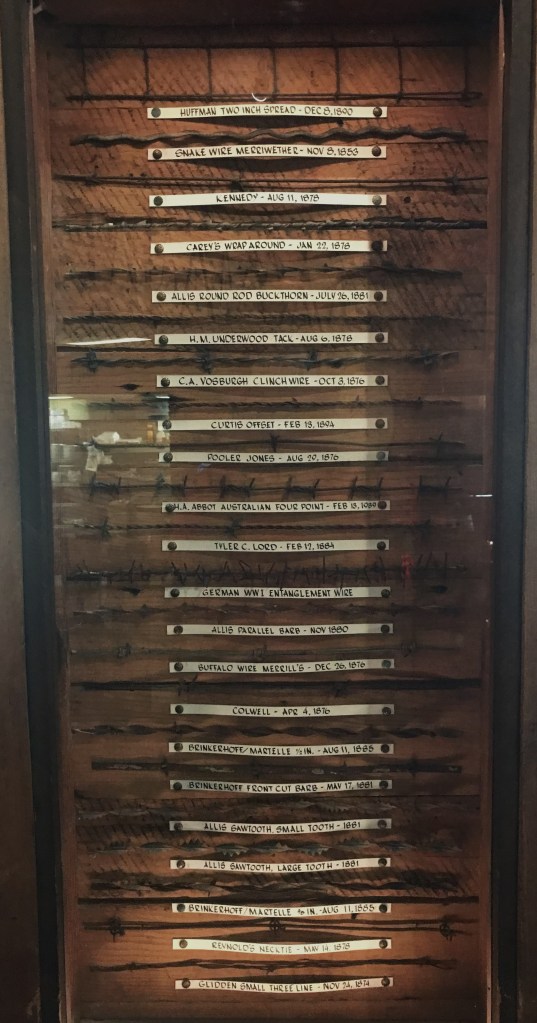 HUFFMAN TWO INCH SPREAD - DEC 8, 1890
SNAKE WIRE MERRIWETHER - NOV 8, 1853
KENNEDY - AUG 11, 1878
CAREY'S WRAP AROUND - JAN 22, 1878
ALLIS ROUND ROD BUCKTHORN - JULY 26, 1881
H.M. UNDERWOOD TACK - AUG 6, 1878
C.A. VOSBURGH CLINCH WIRE - OCT 3, 1876
CURTIS OFFSET - FEB 13, 1894
POOLER JONES - AUG 29, 1876
H.A. ABBOT AUSTRALIAN FOUR POINT - FEB 13, 1989
TYLER C. LORD - FEB 12, 1884
GERMAN WW I ENTANGLEMENT WIRE
ALLIS PARALLEL BARB - NOV 1880
BUFFALO WIRE MERRILL'S - DEC 26, 1876
COLWELL - APR 4, 1876
BRINKERHOFF/MARTELLE ½ IN. - AUG 11, 1885
BRINKERHOFF FRONT CUT BARB - MAY 17, 1881
ALLIS SAWTOOTH, SMALL TOOTH - 1881
ALLIS SAWTOOTH, LARGE TOOTH - 1881
BRINKERHOFF/MARTELLE IN. - AUG 11, 1885
REYNOLD'S NECKTIE - MAY 14, 1878
GLIDDEN SMALL THREE LINE - NOV 24, 1874